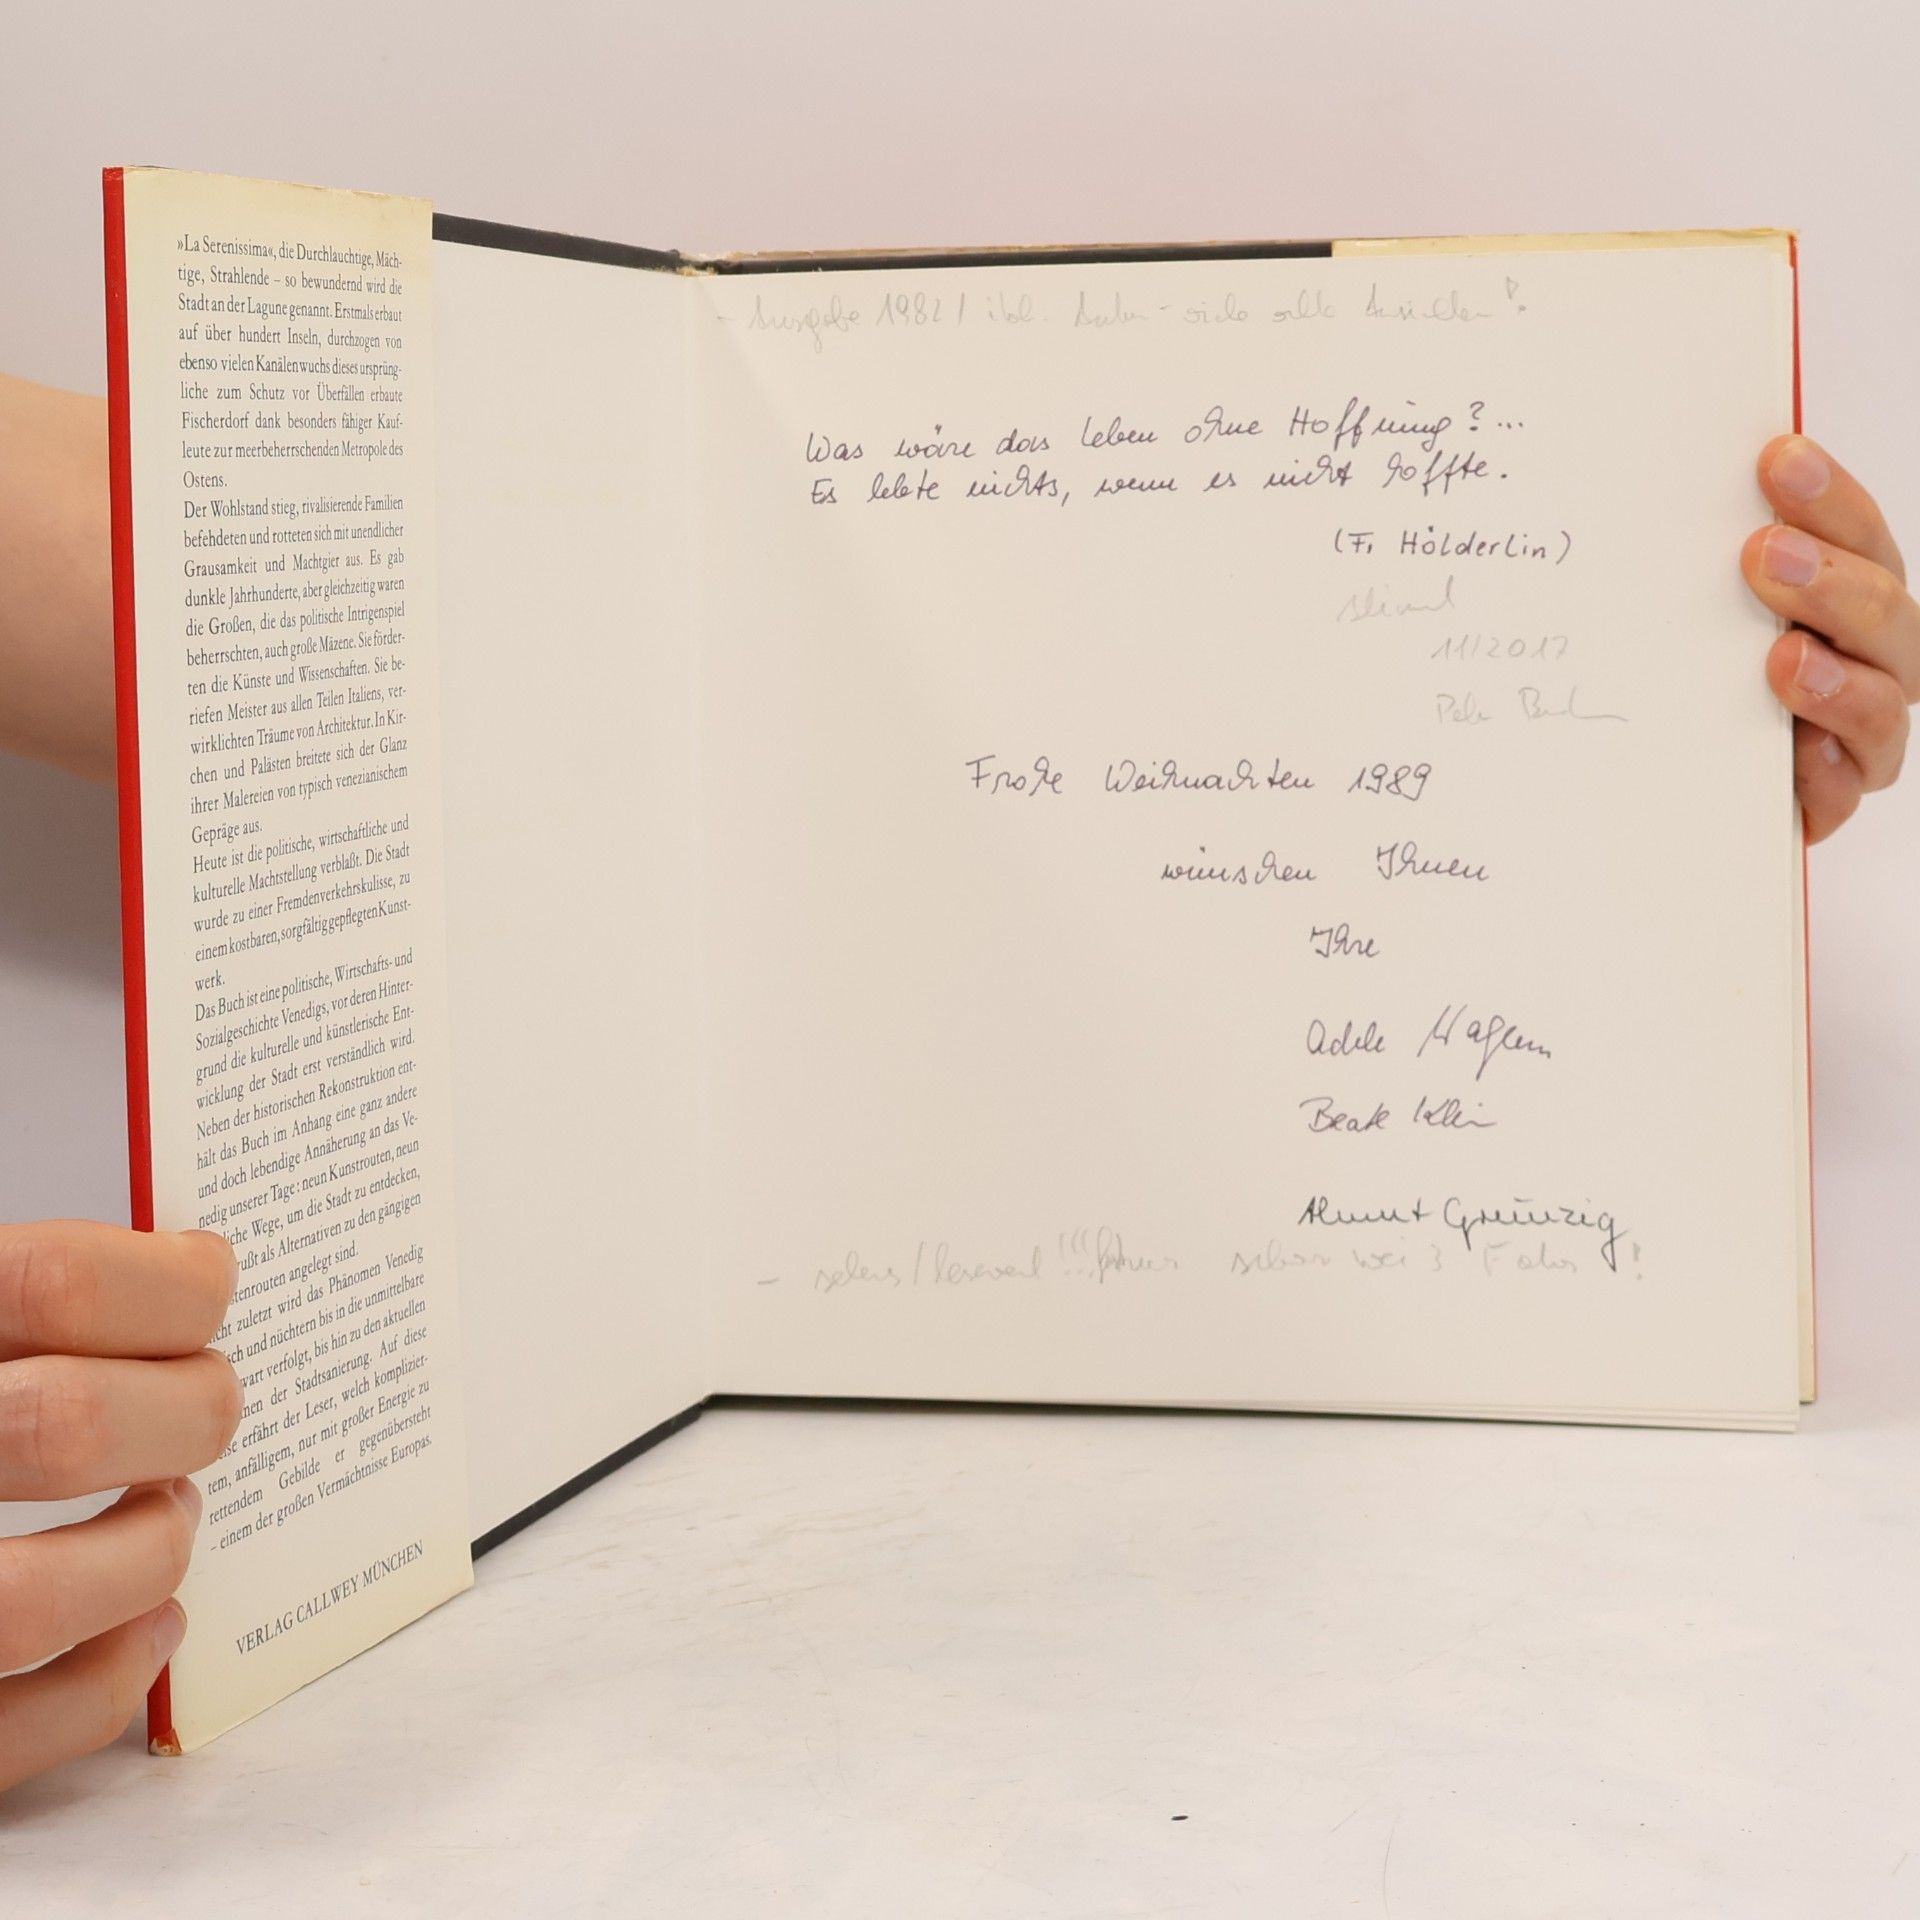 »La Serenissima«, die Durchlauchtige, Mäch-
tige, Strahlende – so bewundernd wird die
Stadt an der Lagune genannt. Erstmals erbaut
auf über hundert Inseln, durchzogen von
ebenso vielen Kanälen wuchs dieses ursprüng-
liche zum Schutz vor Überfällen erbaute
Fischerdorf dank besonders fähiger Kauf-
leute zur meerbeherrschenden Metropole des
Ostens.
Der Wohlstand stieg, rivalisierende Familien
befehdeten und rotteten sich mit unendlicher
Grausamkeit und Machtgier aus. Es gab
dunkle Jahrhunderte, aber gleichzeitig waren
die Großen, die das politische Intrigenspiel
beherrschten, auch große Mäzene. Sie förder-
ten die Künste und Wissenschaften. Sie be-
riefen Meister aus allen Teilen Italiens, ver-
wirklichten Träume von Architektur. In Kir-
chen und Palästen breitete sich der Glanz
ihrer Malereien von typisch venezianischem
Gepräge aus.
Heute ist die politische, wirtschaftliche und
kulturelle Machtstellung verblaßt. Die Stadt
wurde zu einer Fremdenverkehrskulisse, zu
einem kostbaren, sorgfältig gepflegten Kunst-
werk.
Das Buch ist eine politische, Wirtschafts- und
Sozialgeschichte Venedigs, vor deren Hinter-
grund die kulturelle und künstlerische Ent-
wicklung der Stadt erst verständlich wird.
Neben der historischen Rekonstruktion ent-
hält das Buch im Anhang eine ganz andere
und doch lebendige Annäherung an das Ve-
nedig unserer Tage: neun Kunstrouten, neun
liche Wege, um die Stadt zu entdecken,
ußt als Alternativen zu den gängigen
tenrouten angelegt sind.
cht zuletzt wird das Phänomen Venedig
sch und nüchtern bis in die unmittelbare
wart verfolgt, bis hin zu den aktuellen
nen der Stadtsanierung. Auf diese
se erfährt der Leser, welch komplizier-
tem, anfälligem, nur mit großer Energie zu
rettendem Gebilde er gegenübersteht
– einem der großen Vermächtnisse Europas.
VERLAG CALLWEY MÜNCHEN
- Ausgabe 1982 /
Was wäre das Leben ohne Hoffnung? ...
Es lebte nichts, wenn es nicht hoffte.
(F. Hölderlin)
11/2017
Frohe Weihnachten 1989
wünschen Ihnen
Ihre
Adele
Beate Klein
Almut Greinzig